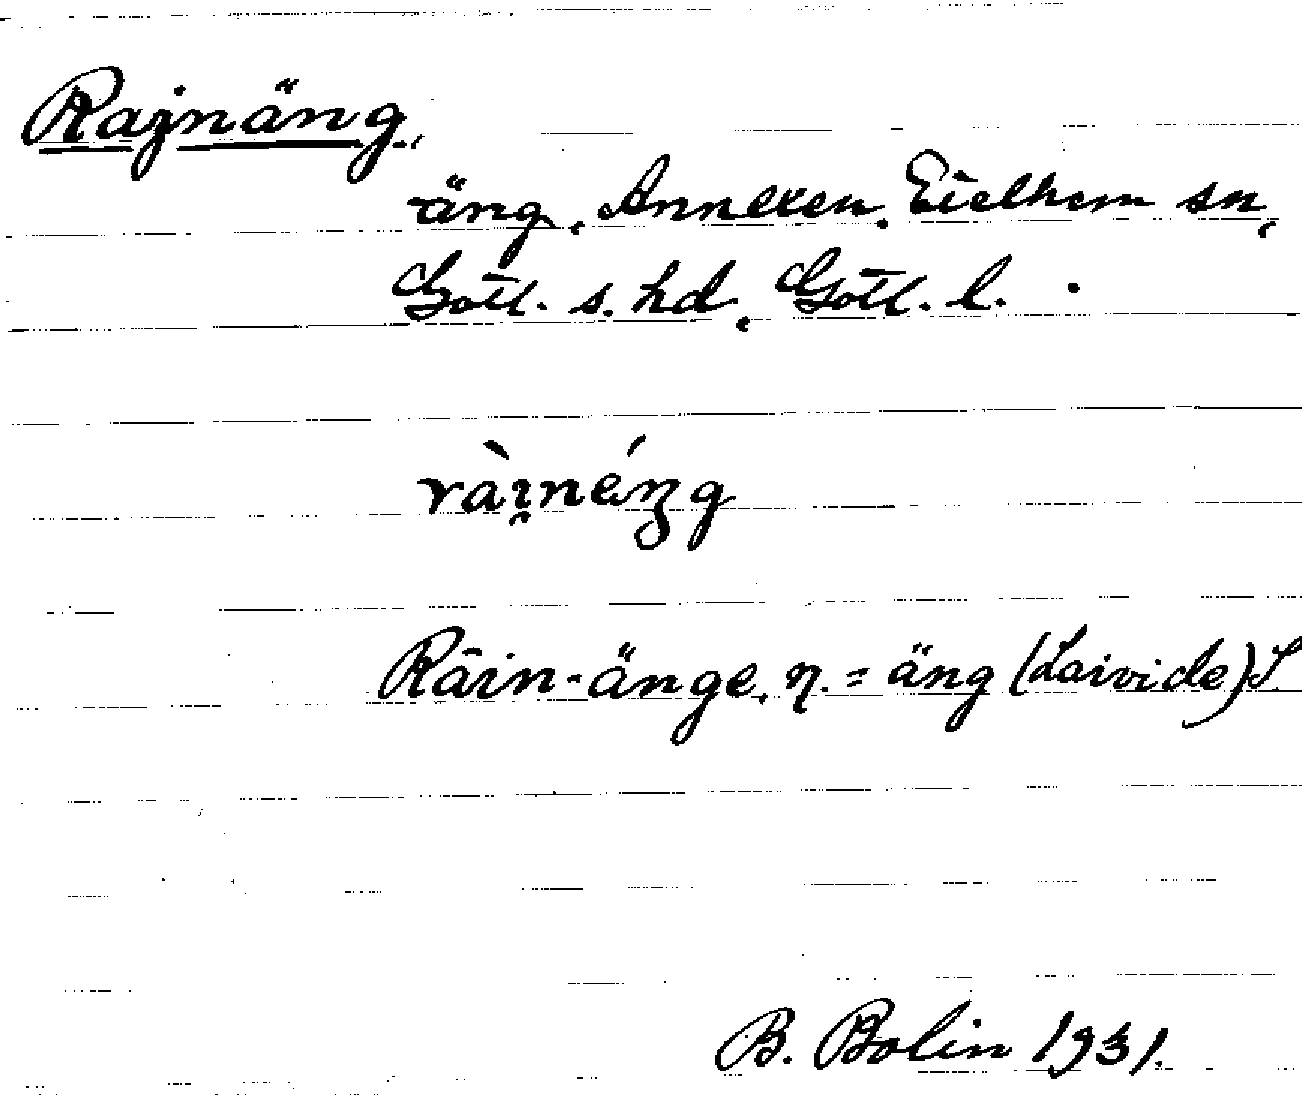 Rajnäng,
äng, Annexen, Eielhem sn,
Gotl. s. hd, Gotl. l.
ràı̯néŋg
Räin-änge, n. = äng (Laivide) S.
B. Bolin 1931.